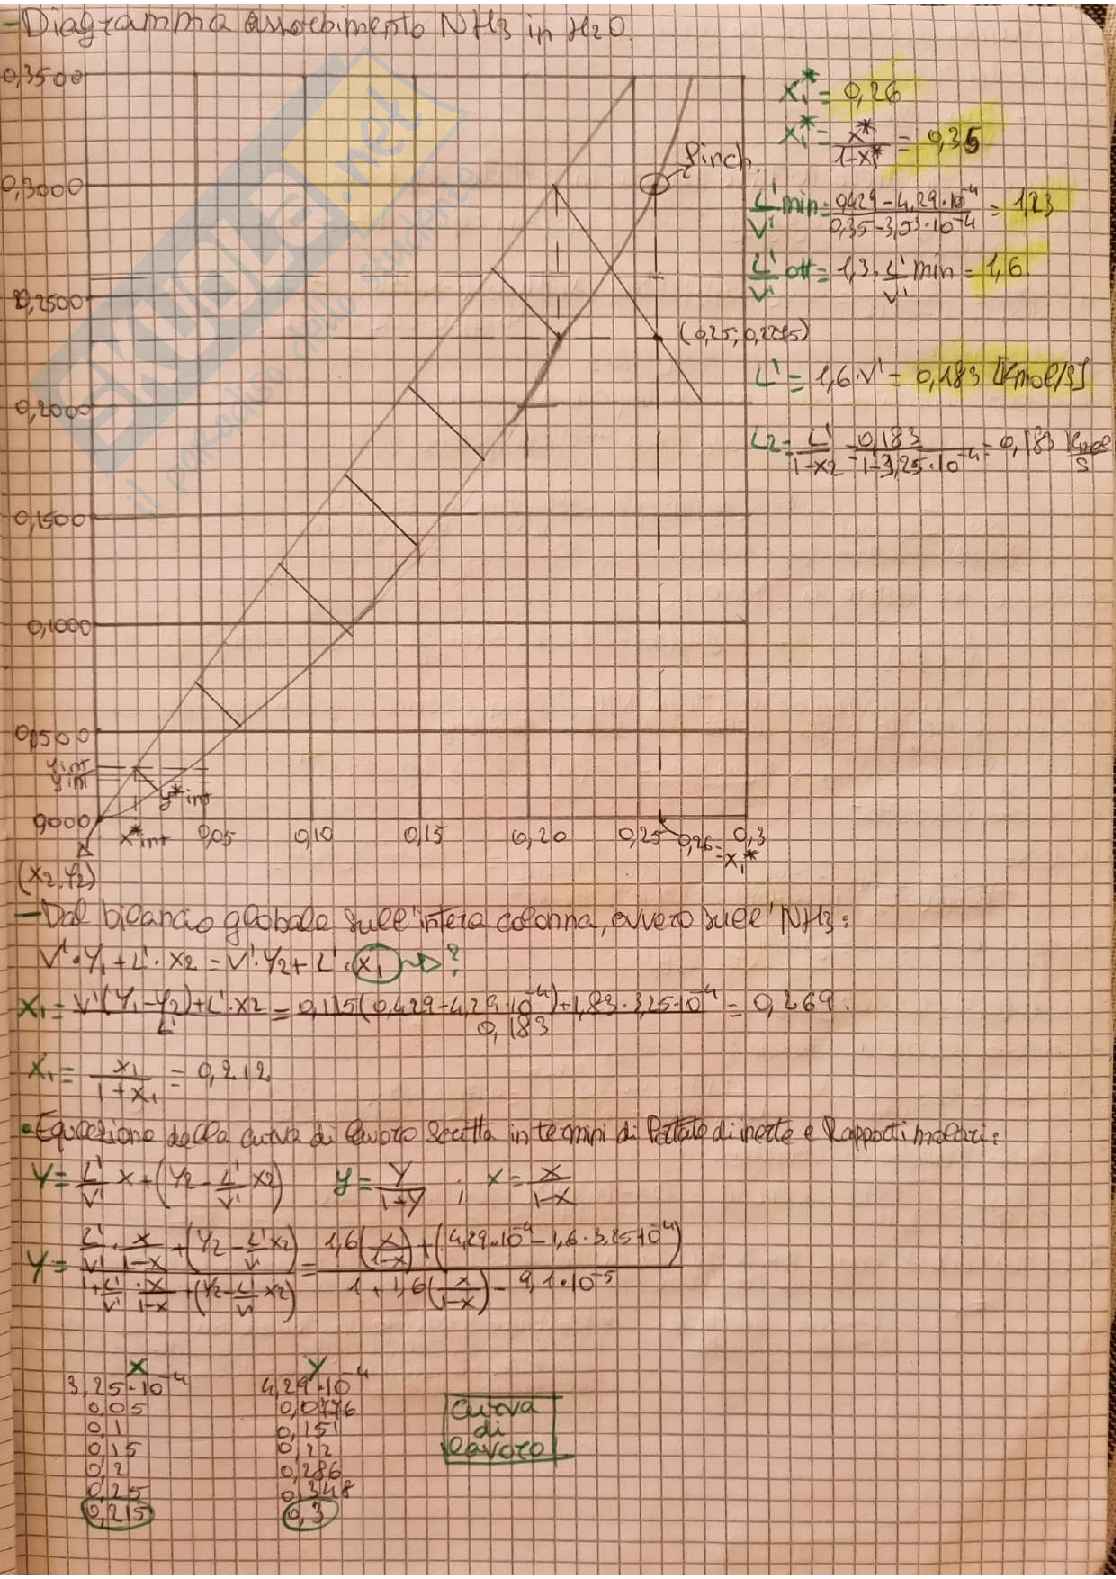 -Diagramma assorbimento NH3 in H2O.
0,3500
0,3000
0,2500
0,2000
0,1500
0,1000
0,0500
yint
yint
0,000
SKUOLA.net
il paradiso dello studente
Pinch
(0,25; 0,2275)
y*int
x*int 0,05 0,10 0,15 0,20 0,25 0,26=x1* 0,3
(x2,y2)
x1*= 0,26
X1*= x*/1-x* = 0,35
L'/V' min= 0,429-4,29·10^-4/0,35-3,03·10^-4 = 1,23
L'/V' ott= 1,3·L'/V' min = 1,6
L'= 1,6·V' = 0,183 [Kmol/s]
L2= L'/1-x2 = 0,183/1-3,25·10^-4 = 0,183 Kmol/s
- Dal bilancio globale sull'intera colonna, ovvero sull'NH3:
V'·Y1+L'·X2 = V'·Y2+L'·X1 → ?
X1= V'(Y1-Y2)+L'·X2/L' = 0,115(0,429-4,29·10^-4)+1,83·3,25·10^-4/0,183 = 0,269.
x1= X1/1+X1 = 0,212
• Equazione della curva di lavoro scritta in termini di Portate di inerte e Rapporti molari:
Y= L'/V' X+(Y2-L'/V' X2) y= Y/1+Y ; X= x/1-x
y= L'/V'·x/1-x+(Y2-L'/V' X2)/1+L'/V'·x/1-x+(Y2-L'/V' X2) = 1,6(x/1-x)+(4,29·10^-4-1,6·3,25·10^-4)/1+1,6(x/1-x)-9,1·10^-5
x y
3,25·10^-4 4,29·10^-4
0,05 0,0776
0,1 0,151
0,15 0,22
0,2 0,286
0,25 0,348
0,215 0,3
Curva
di
lavoro